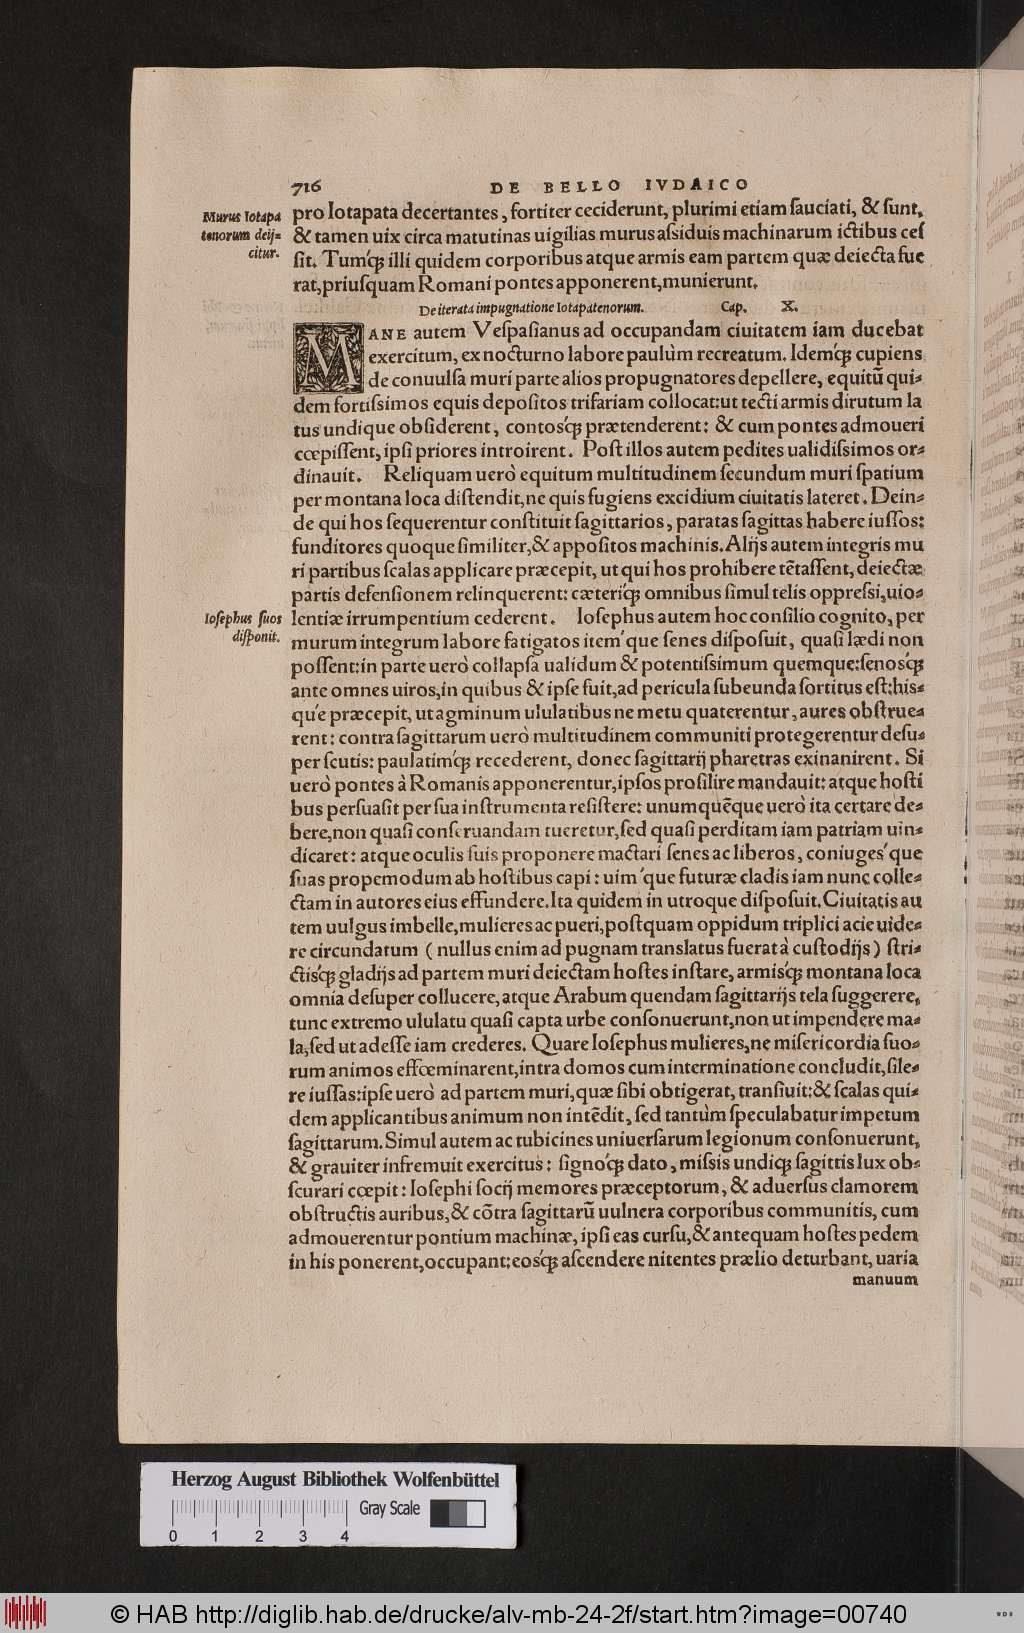 716 DE BELLO IVDAICO
Murus Iotapa
tenorum deij=
citur.
pro Iotapata decertantes, fortiter ceciderunt, plurimi etiam sauciati, & sunt,
& tamen uix circa matutinas uigilias murus assiduis machinarum ictibus ces
sit. Tumq́; illi quidem corporibus atque armis eam partem quæ deiecta fue
rat, priusquam Romani pontes apponerent, munierunt.
De iterata impugnatione Iotapatenorum. Cap. X.
MANE autem Vespasianus ad occupandam ciuitatem iam ducebat
exercitum, ex nocturno labore paulùm recreatum. Idemq́; cupiens
de conuulsa muri parte alios propugnatores depellere, equitū qui=
dem fortissimos equis depositos trifariam collocat: ut tecti armis dirutum la
tus undique obsiderent, contosq́; prætenderent: & cum pontes admoueri
cœpissent, ipsi priores introirent. Post illos autem pedites ualidissimos or=
dinauit. Reliquam uerò equitum multitudinem secundum muri spatium
per montana loca distendit, ne quis fugiens excidium ciuitatis lateret. Dein=
de qui hos sequerentur constituit sagittarios, paratas sagittas habere iussos:
funditores quoque similiter, & appositos machinis. Alijs autem integris mu
ri partibus scalas applicare præcepit, ut qui hos prohibere tētassent, deiectæ
partis defensionem relinquerent: cæteriq́; omnibus simul telis oppressi, uio=
Iosephus suos
disponit.
lentiæ irrumpentium cederent. Iosephus autem hoc consilio cognito, per
murum integrum labore fatigatos item´que senes disposuit, quasi lædi non
possent: in parte uerò collapsa ualidum & potentissimum quemque: senosq́;
ante omnes uiros, in quibus & ipse fuit, ad pericula subeunda sortitus est: his=
qúe præcepit, ut agminum ululatibus ne metu quaterentur, aures obstrue=
rent: contra sagittarum uerò multitudinem communiti protegerentur desu=
per scutis: paulatimq́; recederent, donec sagittarij pharetras exinanirent. Si
uerò pontes à Romanis apponerentur, ipsos prosilire mandauit: atque hosti
bus persuasit per sua instrumenta resistere: unumquēque uerò ita certare de=
bere, non quasi conseruandam tueretur, sed quasi perditam iam patriam uin=
dicaret: atque oculis suis proponere mactari senes ac liberos, coniuges´que
suas propemodum ab hostibus capi: uim´que futuræ cladis iam nunc colle=
ctam in autores eius effundere. Ita quidem in utroque disposuit. Ciuitatis au
tem uulgus imbelle, mulieres ac pueri, postquam oppidum triplici acie uide=
re circundatum ( nullus enim ad pugnam translatus fuerat à custodijs ) stri=
ctisq́; gladijs ad partem muri deiectam hostes instare, armisq́; montana loca
omnia desuper collucere, atque Arabum quendam sagittarijs tela suggerere,
tunc extremo ululatu quasi capta urbe consonuerunt, non ut impendere ma=
la, sed ut adesse iam crederes. Quare Iosephus mulieres, ne misericordia suo=
rum animos effœminarent, intra domos cum interminatione concludit, sile=
re iussas: ipse uerò ad partem muri, quæ sibi obtigerat, transiuit: & scalas qui=
dem applicantibus animum non intēdit, sed tantùm speculabatur impetum
sagittarum. Simul autem ac tubicines uniuersarum legionum consonuerunt,
& grauiter infremuit exercitus: signoq́; dato, missis undiq; sagittis lux ob=
scurari cœpit: Iosephi socij memores præceptorum, & aduersus clamorem
obstructis auribus, & cōtra sagittarū uulnera corporibus communitis, cum
admouerentur pontium machinæ, ipsi eas cursu, & antequam hostes pedem
in his ponerent, occupant: eosq́; ascendere nitentes prælio deturbant, uaria
manuum
Herzog August Bibliothek Wolfenbüttel
Gray Scale
0 1 2 3 4
© HAB http://diglib.hab.de/drucke/alv-mb-24-2f/start.htm?image=00740